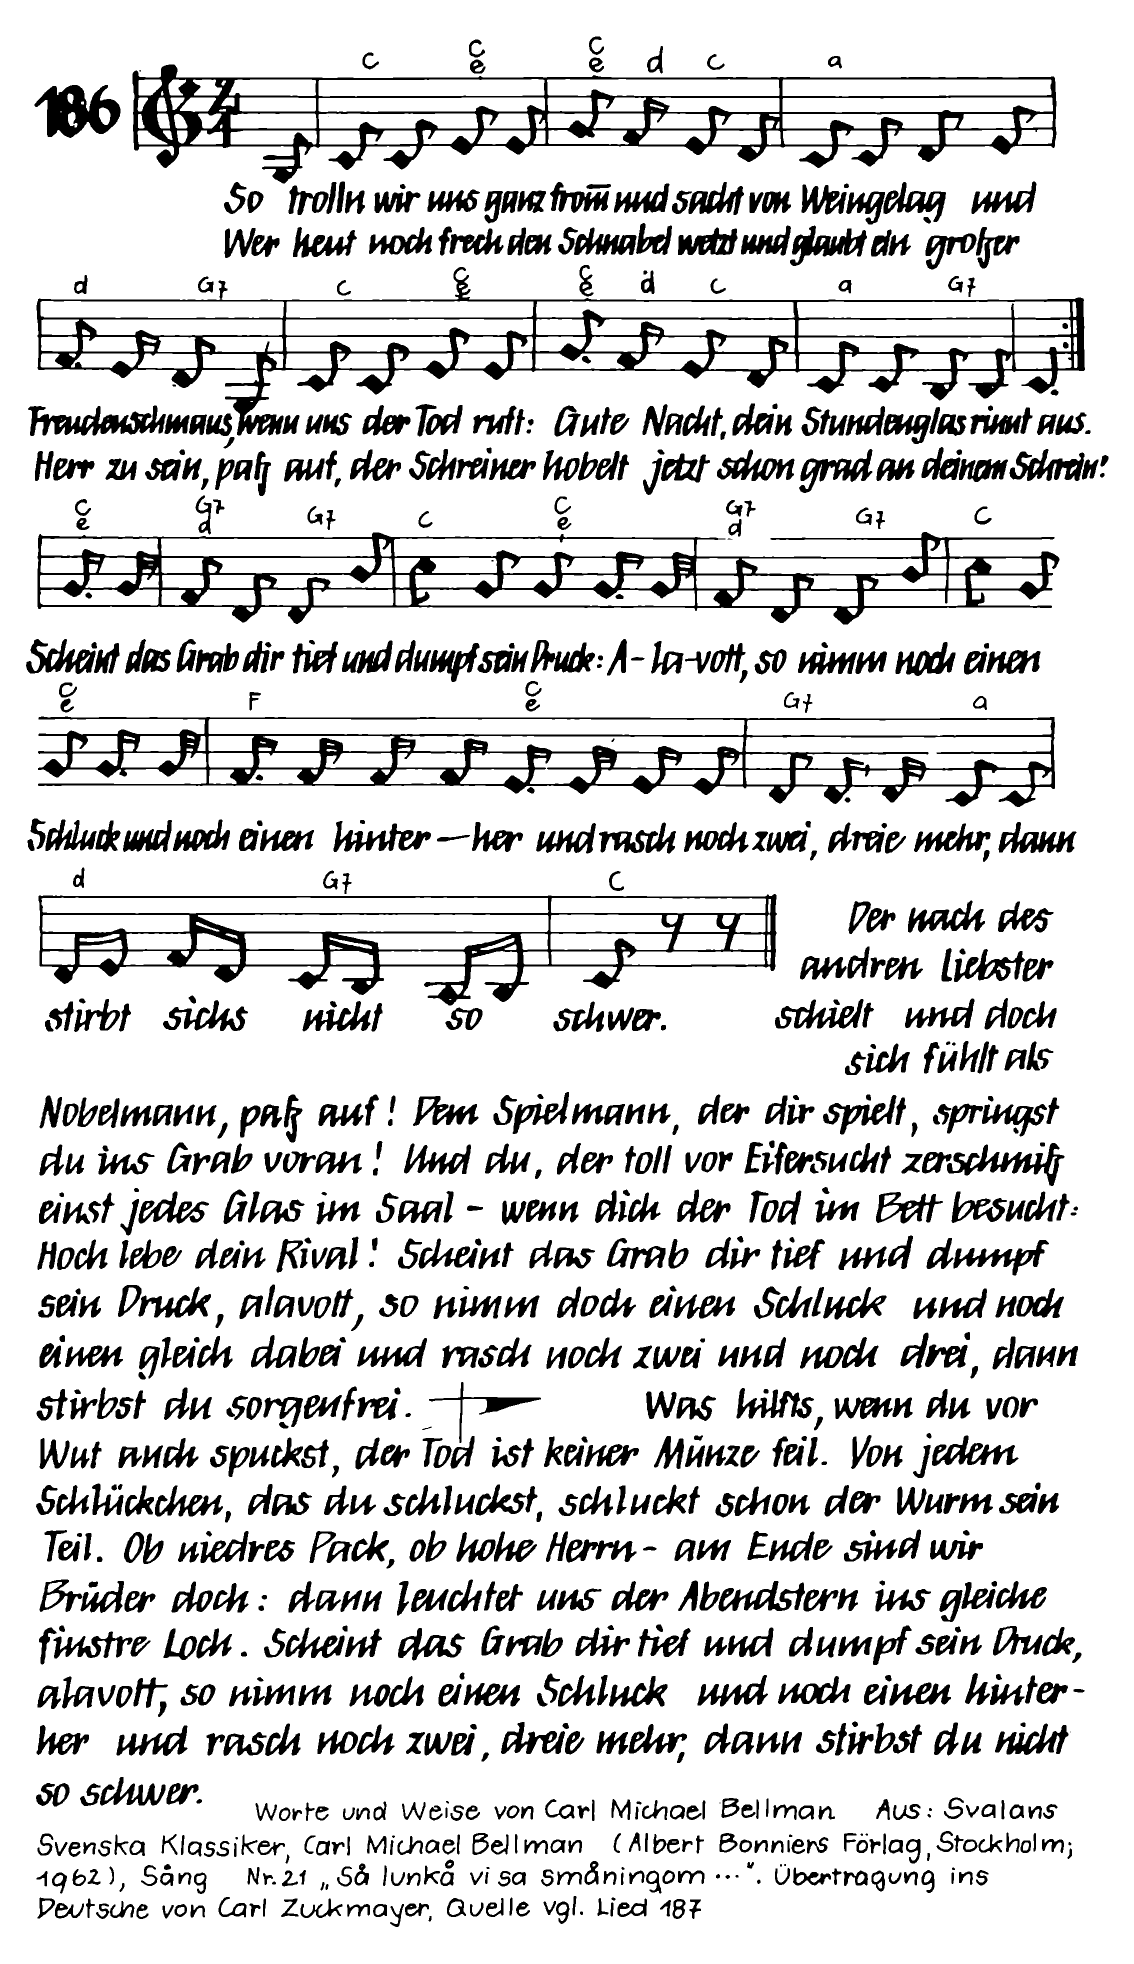 186
C C e C e d C a
So trolln wir uns ganz from̅ und sacht von Weingelag und
Wer heut noch frech den Schnabel wetzt und glaubt ein großer
d G7 C C e C e d C a G7
Freudenschmaus, wenn uns der Tod ruft: Gute Nacht, dein Stundenglas rinnt aus.
Herr zu sein, paß auf, der Schreiner hobelt jetzt schon grad an deinem Schrein!
C e G7 d G7 C C e G7 d G7 C
Scheint das Grab dir tief und dumpf sein Druck: A-la-vott, so nimm noch einen
C e F C e G7 a
Schluck und noch einen hinter—her und rasch noch zwei, dreie mehr, dann
d G7 C
stirbt sichs nicht so schwer.
Der nach des
andren liebster
schielt und doch
sich fühlt als
Nobelmann, paß auf! Dem Spielmann, der dir spielt, springst
du ins Grab voran! Und du, der toll vor Eifersucht zerschmiß
einst jedes Glas im Saal - wenn dich der Tod im Bett besucht:
Hoch lebe dein Rival! Scheint das Grab dir tief und dumpf
sein Druck, alavott, so nimm doch einen Schluck und noch
einen gleich dabei und rasch noch zwei und noch drei, dann
stirbst du sorgenfrei. Was hilfts, wenn du vor
Wut auch spuckst, der Tod ist keiner Münze feil. Von jedem
Schlückchen, das du schluckst, schluckt schon der Wurm sein
Teil. Ob niedres Pack, ob hohe Herrn - am Ende sind wir
Brüder doch: dann leuchtet uns der Abendstern ins gleiche
finstre Loch. Scheint das Grab dir tief und dumpf sein Druck,
alavott, so nimm noch einen Schluck und noch einen hinter-
her und rasch noch zwei, dreie mehr, dann stirbst du nicht
so schwer.
Worte und Weise von Carl Michael Bellman Aus: Svalans
Svenska Klassiker, Carl Michael Bellman (Albert Bonniers Förlag, Stockholm;
1962), Sång Nr. 21 „Så lunkå vi sa småningom ...“. Übertragung ins
Deutsche von Carl Zuckmayer, Quelle vgl. Lied 187